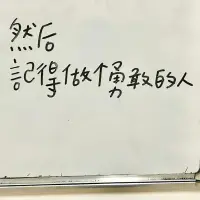 然后
記得做個勇敢的人